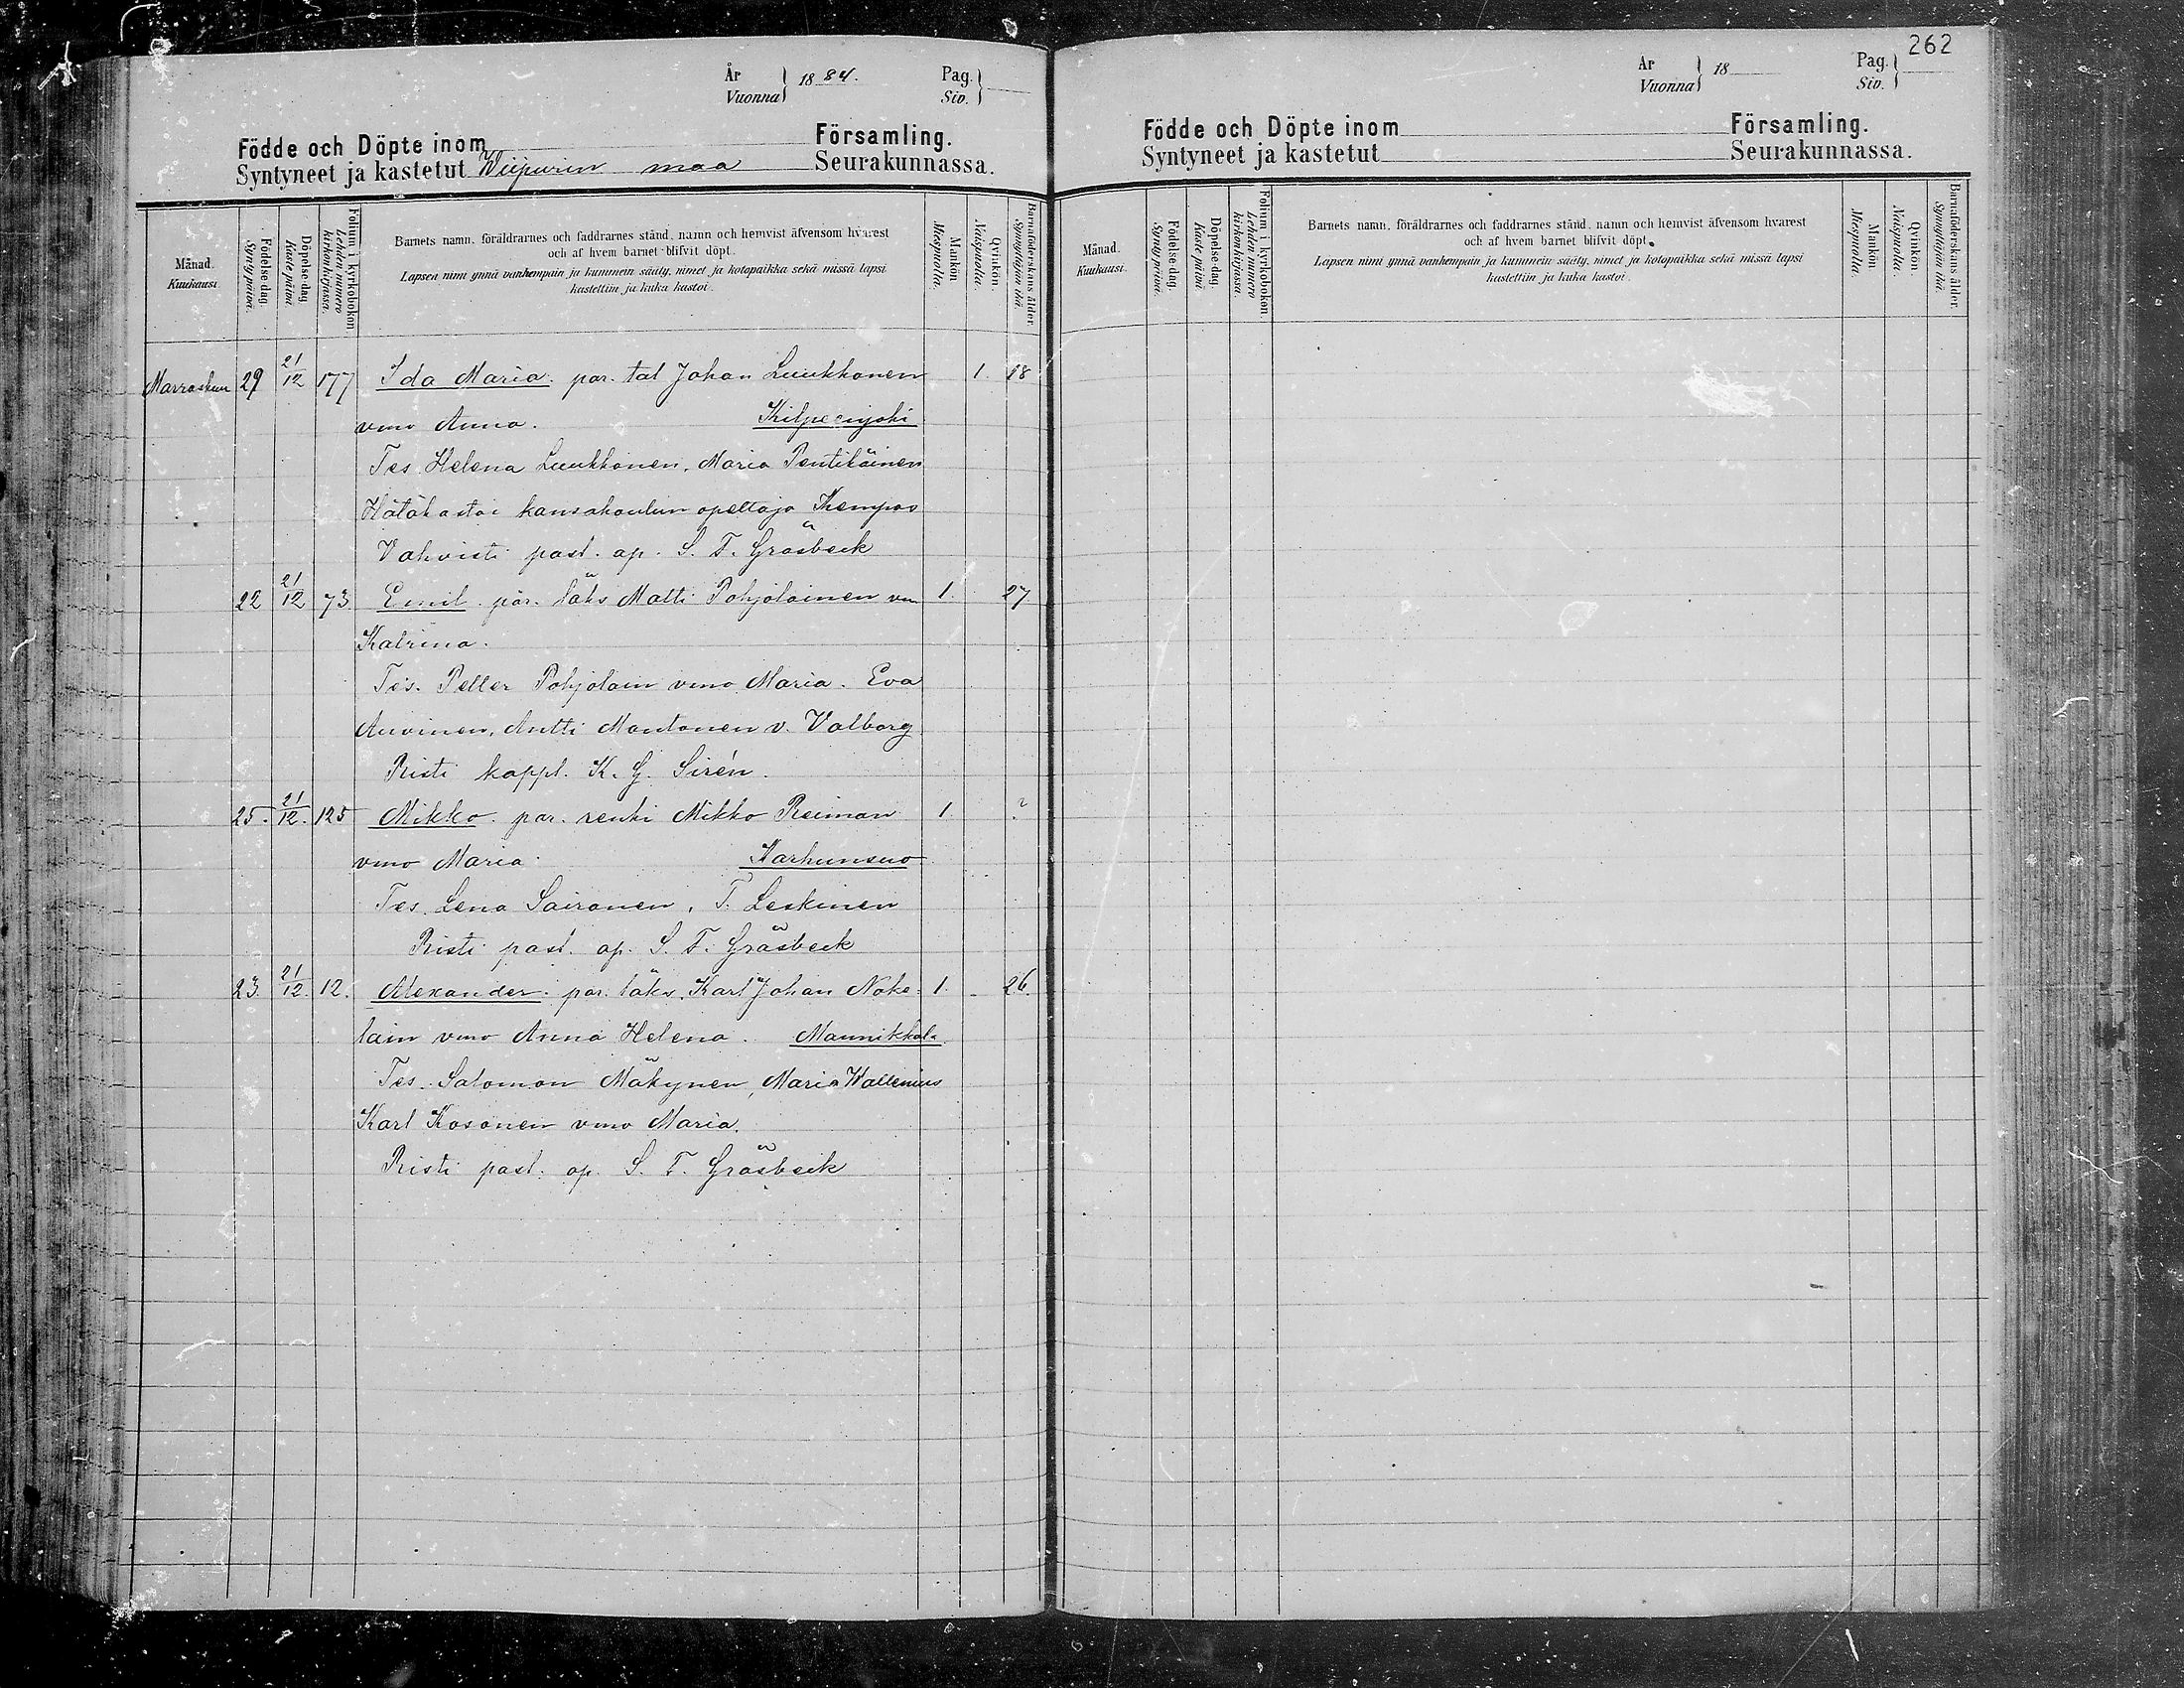 År
Vuonna } 18 84. Pag.
Siv. }
Födde och Döpte inom Församling.
Syntyneet ja kastetut Wiipurin maa Seurakunnassa.
Månad.
Kuukausi.
Födelse-dag.
Syntypäivä.
Döpelse-dag.
Kaste päivä.
Folium i kyrkoboken
Lehden numero
kirkonkirjassa.
Barnets namn, föräldrarnes och faddrarnes stånd, namn och hemvist äfvensom hvarest
och af hvem barnet blifvit döpt.
Lapsen nimi ynnä vanhempain ja kummein sääty, nimet ja kotopaikka sekä missä lapsi
kastettiin ja kuka kastoi.
Mankön.
Miespuolia.
Qvinkön.
Naispuolia.
Barnaföderskans ålder.
Synnyttäjän ikä.
Marraskuu 29 21/12 177 Ida Maria. par. tal Johan Luukkonen 1. 18
vmo Anna. Kilpeenjoki
Tes. Helena Luukkonen, Maria Pentikäinen
Hätäkastoi kansakoulun opettaja Kempas
Vahvisti past. ap. S. F. Gräsbeck
22 21/12 73. Emil. par. läks Matti Pohjolainen vm 1. 27
Katrina.
Tes. Petter Pohjolain vmo Maria. Eva
Auvinen, Antti Montonen v. Valborg
Risti kappl. K. G. Sirén.
25. 21/12. 125 Mikko. par. renki Mikko Reiman 1 ?
vmo Maria. Karhunsuo
Tes. Lena Sairanen, T. Leskinen
Risti past. ap. S. F. Gräsbeck
23. 21/12. 12. Alexander. par. läks. Karl Johan Noke- 1. 26.
lain vmo Anna Helena. Mannikkala.
Tes. Salomon Mäkynen, Maria Wallenius
Karl Kosonen vmo Maria.
Risti past. ap. S. F. Gräsbeck
262
År
Vuonna } 18 Pag.
Siv. }
Födde och Döpte inom Församling.
Syntyneet ja kastetut Seurakunnassa.
Månad.
Kuukausi.
Födelse-dag.
Syntypäivä.
Döpelse-dag.
Kaste päivä.
Folium i kyrkoboken
Lehden numero
kirkonkirjassa.
Barnets namn, föräldrarnes och faddrarnes stånd, namn och hemvist äfvensom hvarest
och af hvem barnet blifvit döpt.
Lapsen nimi ynnä vanhempain ja kummein sääty, nimet ja kotopaikka sekä missä lapsi
kastettiin ja kuka kastoi.
Mankön.
Miespuolia.
Qvinkön.
Naispuolia.
Barnaföderskans ålder.
Synnyttäjän ikä.